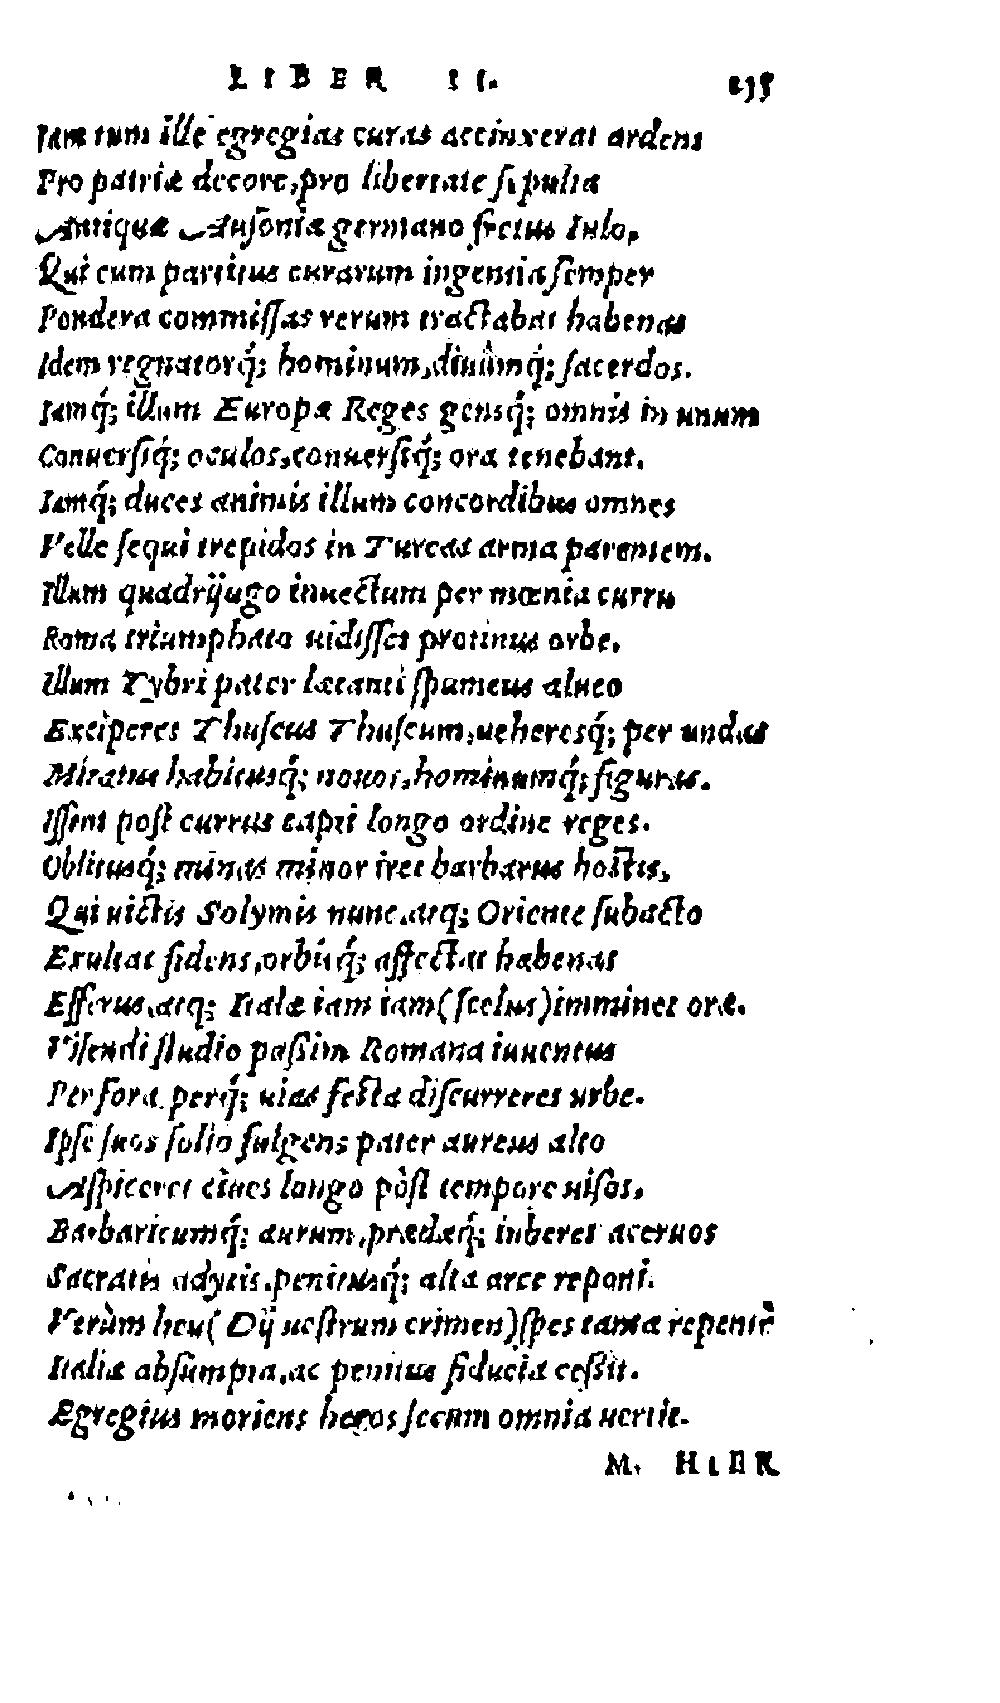 LIBER II. 135
Iam tum ille egregias curas accinxerat ardens
Pro patriæ decore, pro libertate sepulta
Antiquæ Ausoniæ germano fretus Iulo,
Qui cum partitus curarum ingentia semper
Pondera commissas rerum tractabat habenas
Idem regnatorq́; hominum, diuûmq́; sacerdos.
Iamq́; illum Europæ Reges gensq́; omnis in unum
Conuersiq́; oculos, conuersiq́; ora tenebant.
Iamq́; duces animis illum concordibus omnes
Velle sequi trepidos in Turcas arma parantem.
Illum quadrijugo inuectum per mœnia curru
Roma triumphato uidisset protinus orbe.
Illum Tybri pater lætanti spumeus alueo
Exciperes Thuscus Thuscum, ueheresq́; per undas
Miratus habitusq́; nouos, hominumq́; figuras.
Issent post currus capti longo ordine reges.
Oblitusq́; minas minor iret barbarus hostis,
Qui uictis Solymis nunc, atq; Oriente subacto
Exultat fidens, orbisq́; affectat habenas
Efferus, atq; Italæ iam iam (scelus) imminet oræ.
Visendi studio passim Romana iuuentus
Per fora, perq́; uias festa discurreret urbe.
Ipse suos solio fulgens pater aureus alto
Aspiceret ciues longo pòst tempore uisos,
Barbaricumq́; aurum, prædæq́; iuberet aceruos
Sacratis adytis, penitusq́; alta arce reponi.
Verùm heu (Dij uestrum crimen) spes tanta repentè
Italiæ absumpta, ac penitus fiducia cessit.
Ægregius moriens heros secum omnia uertit.
M. HIER